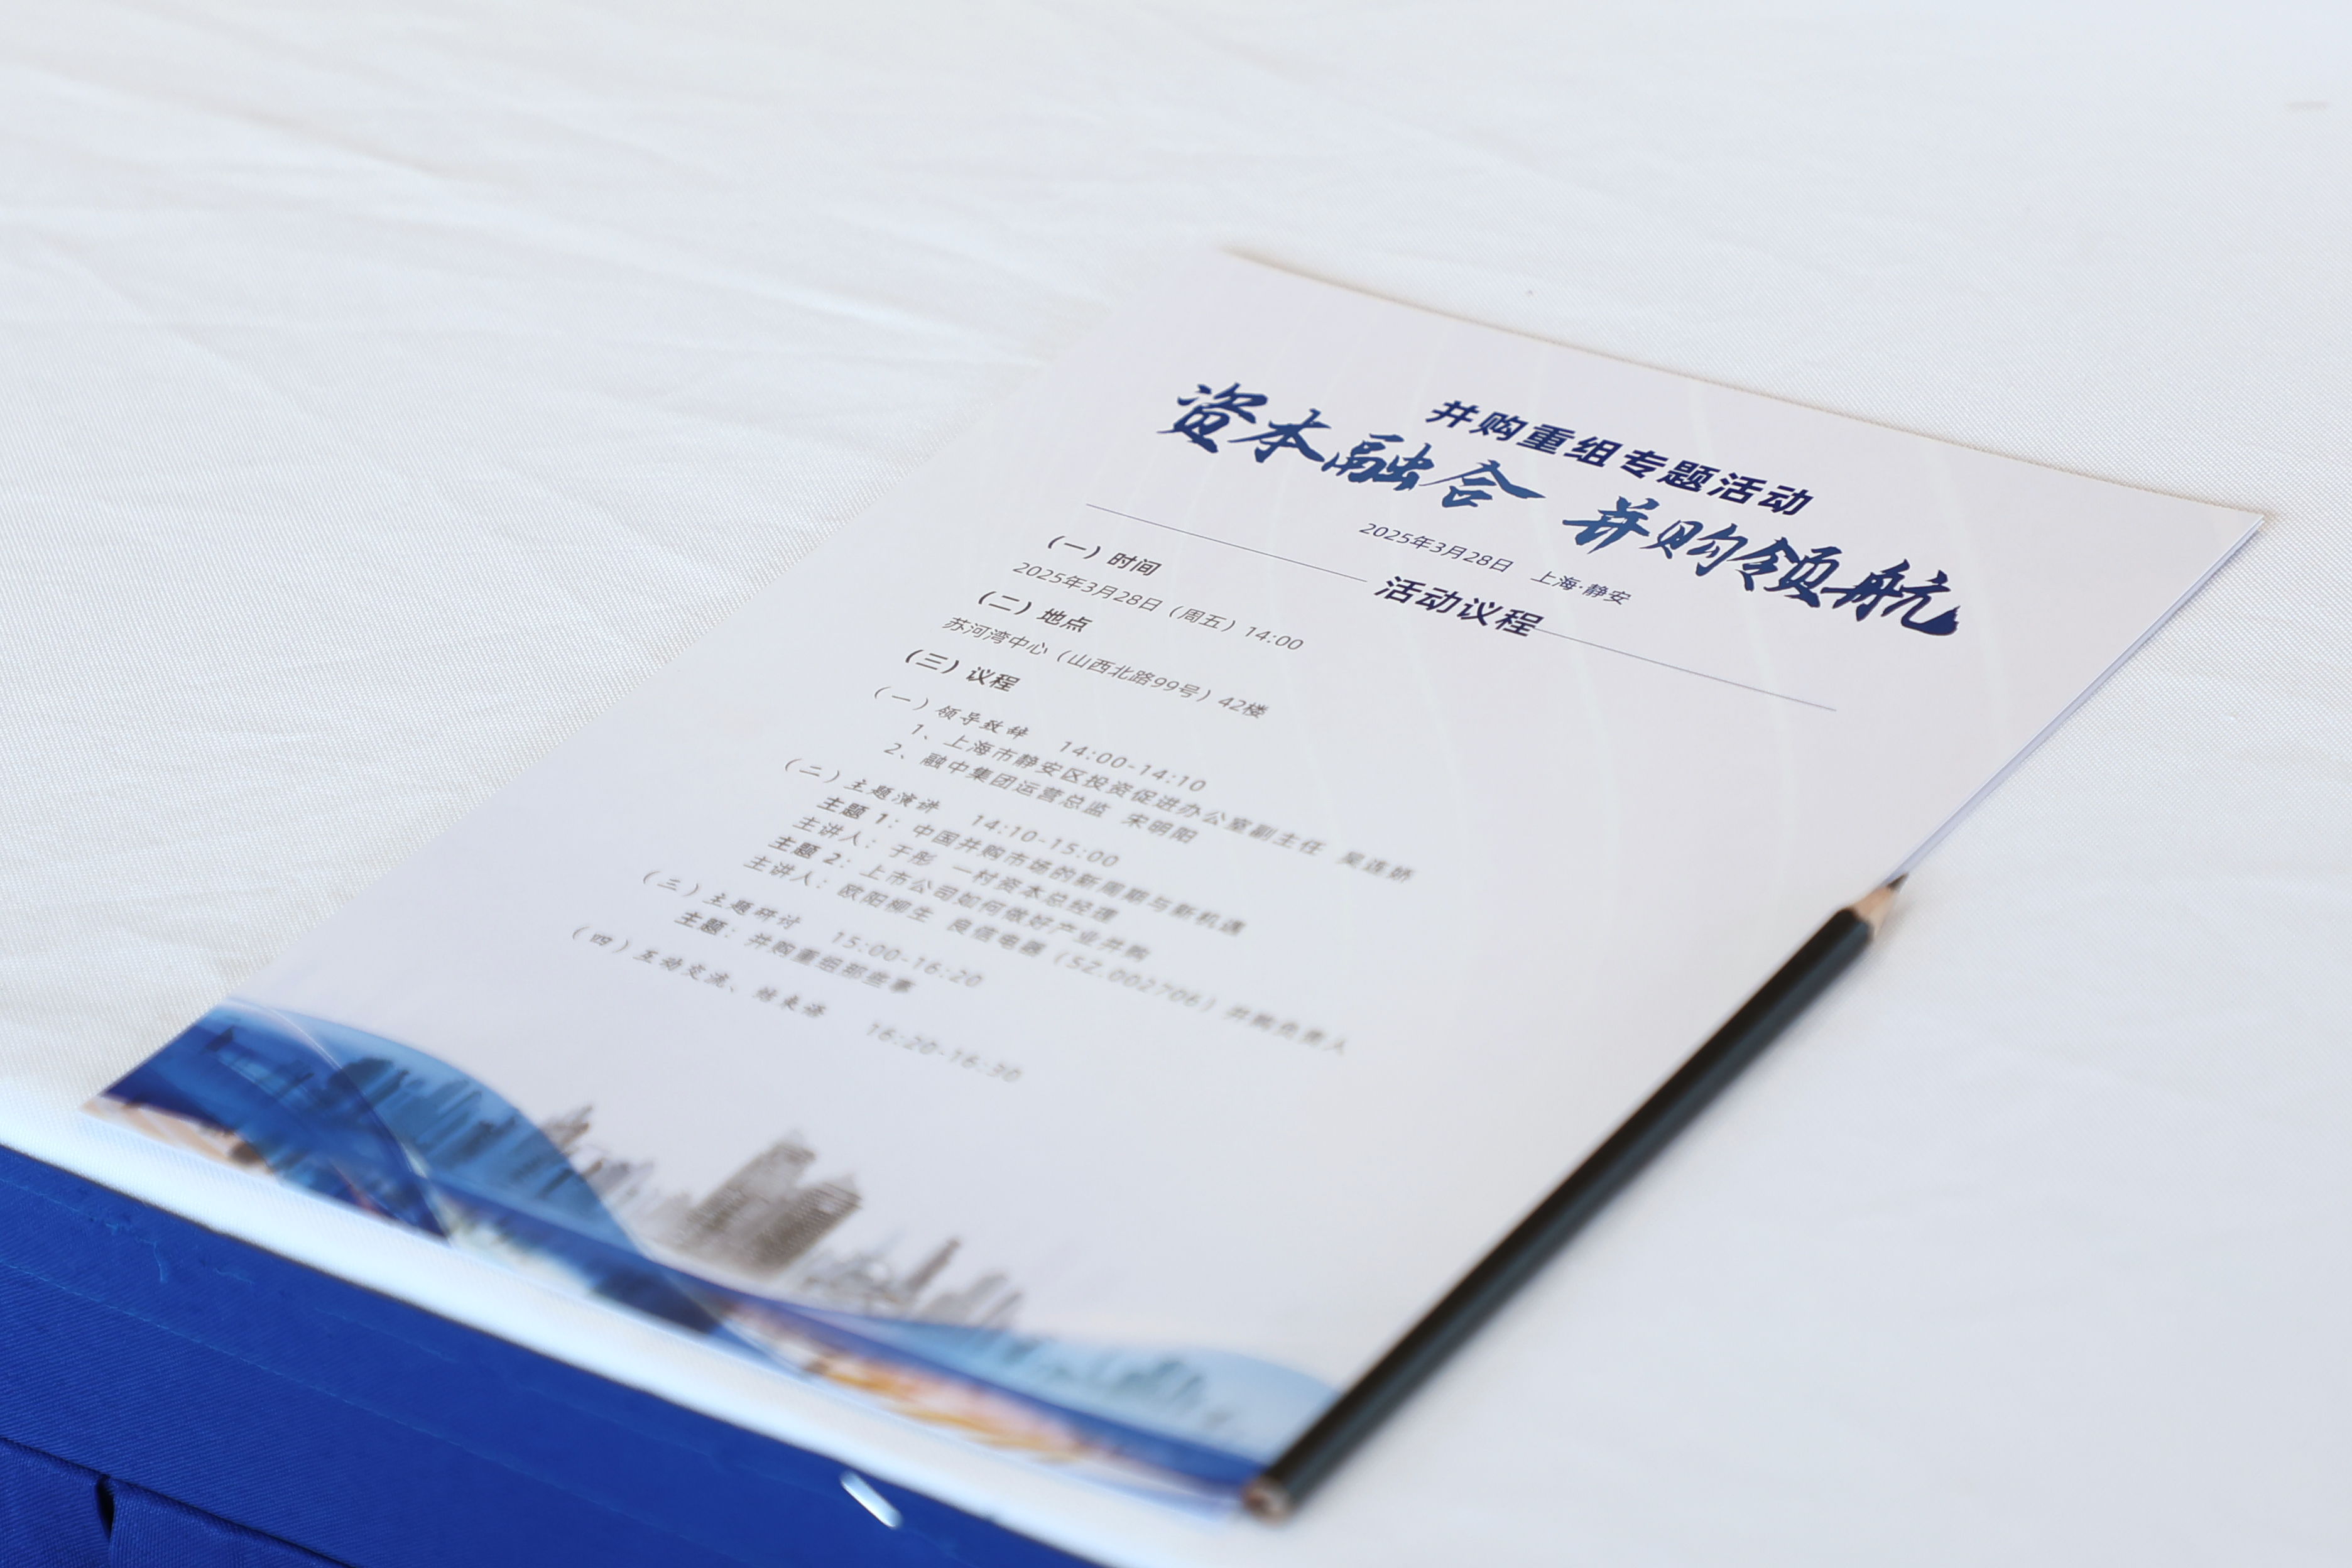 并购重组专题活动
资本融合 并购领航
2025年3月28日 上海·静安
活动议程
（一）时间
2025年3月28日（周五）14:00
（二）地点
苏河湾中心（山西北路99号）42楼
（三）议程
（一）领导致辞 14:00-14:10
1、上海市静安区投资促进办公室副主任 吴连娇
2、融中集团运营总监 宋明阳
（二）主题演讲 14:10-15:00
主题 1：中国并购市场的新周期与新机遇
主讲人：于彤 一村资本总经理
主题 2：上市公司如何做好产业并购
主讲人：欧阳柳生 良信电器（SZ.002706）并购负责人
（三）主题研讨 15:00-16:20
主题：并购重组那些事
（四）互动交流、结束语 16:20-16:30